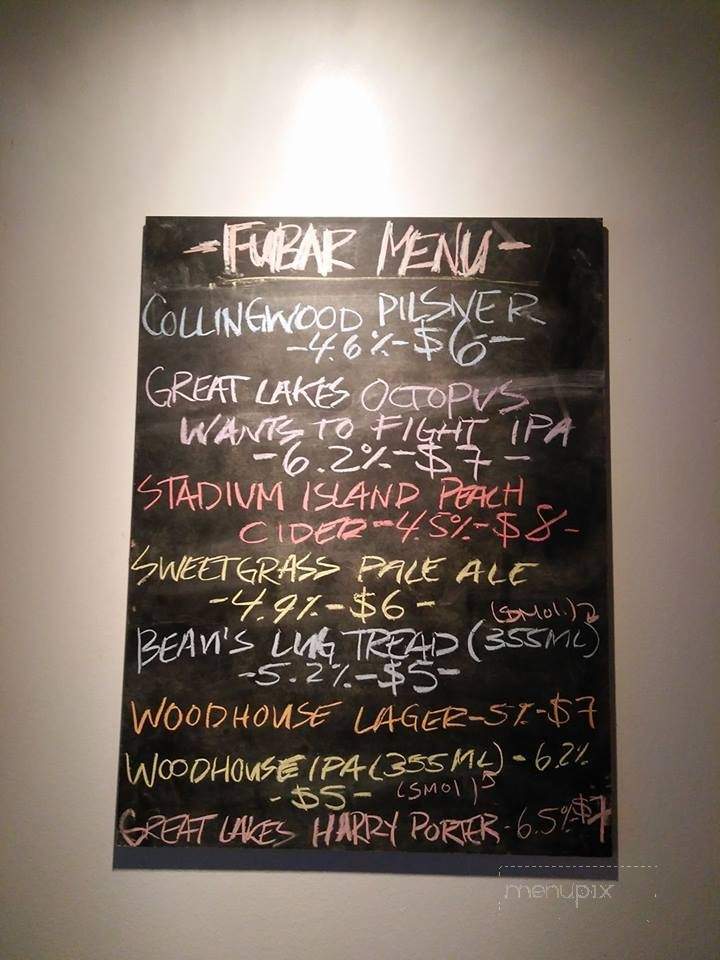 -FUBAR MENU-
COLLINGWOOD PILSNER
-4.6%-$6-
GREAT LAKES OCTOPUS
WANTS TO FIGHT IPA
-6.2%-$7-
STADIUM ISLAND PEACH
CIDER-4.5%-$8-
SWEETGRASS PALE ALE
-4.9%-$6-
(SMOL)
BEAU'S LUG TREAD (355ML)
-5.2%-$5-
WOODHOUSE LAGER-5%-$7
WOODHOUSE IPA (355ML)-6.2%
-$5- (SMOL)
GREAT LAKES HARRY PORTER-6.5%-$7
menupix